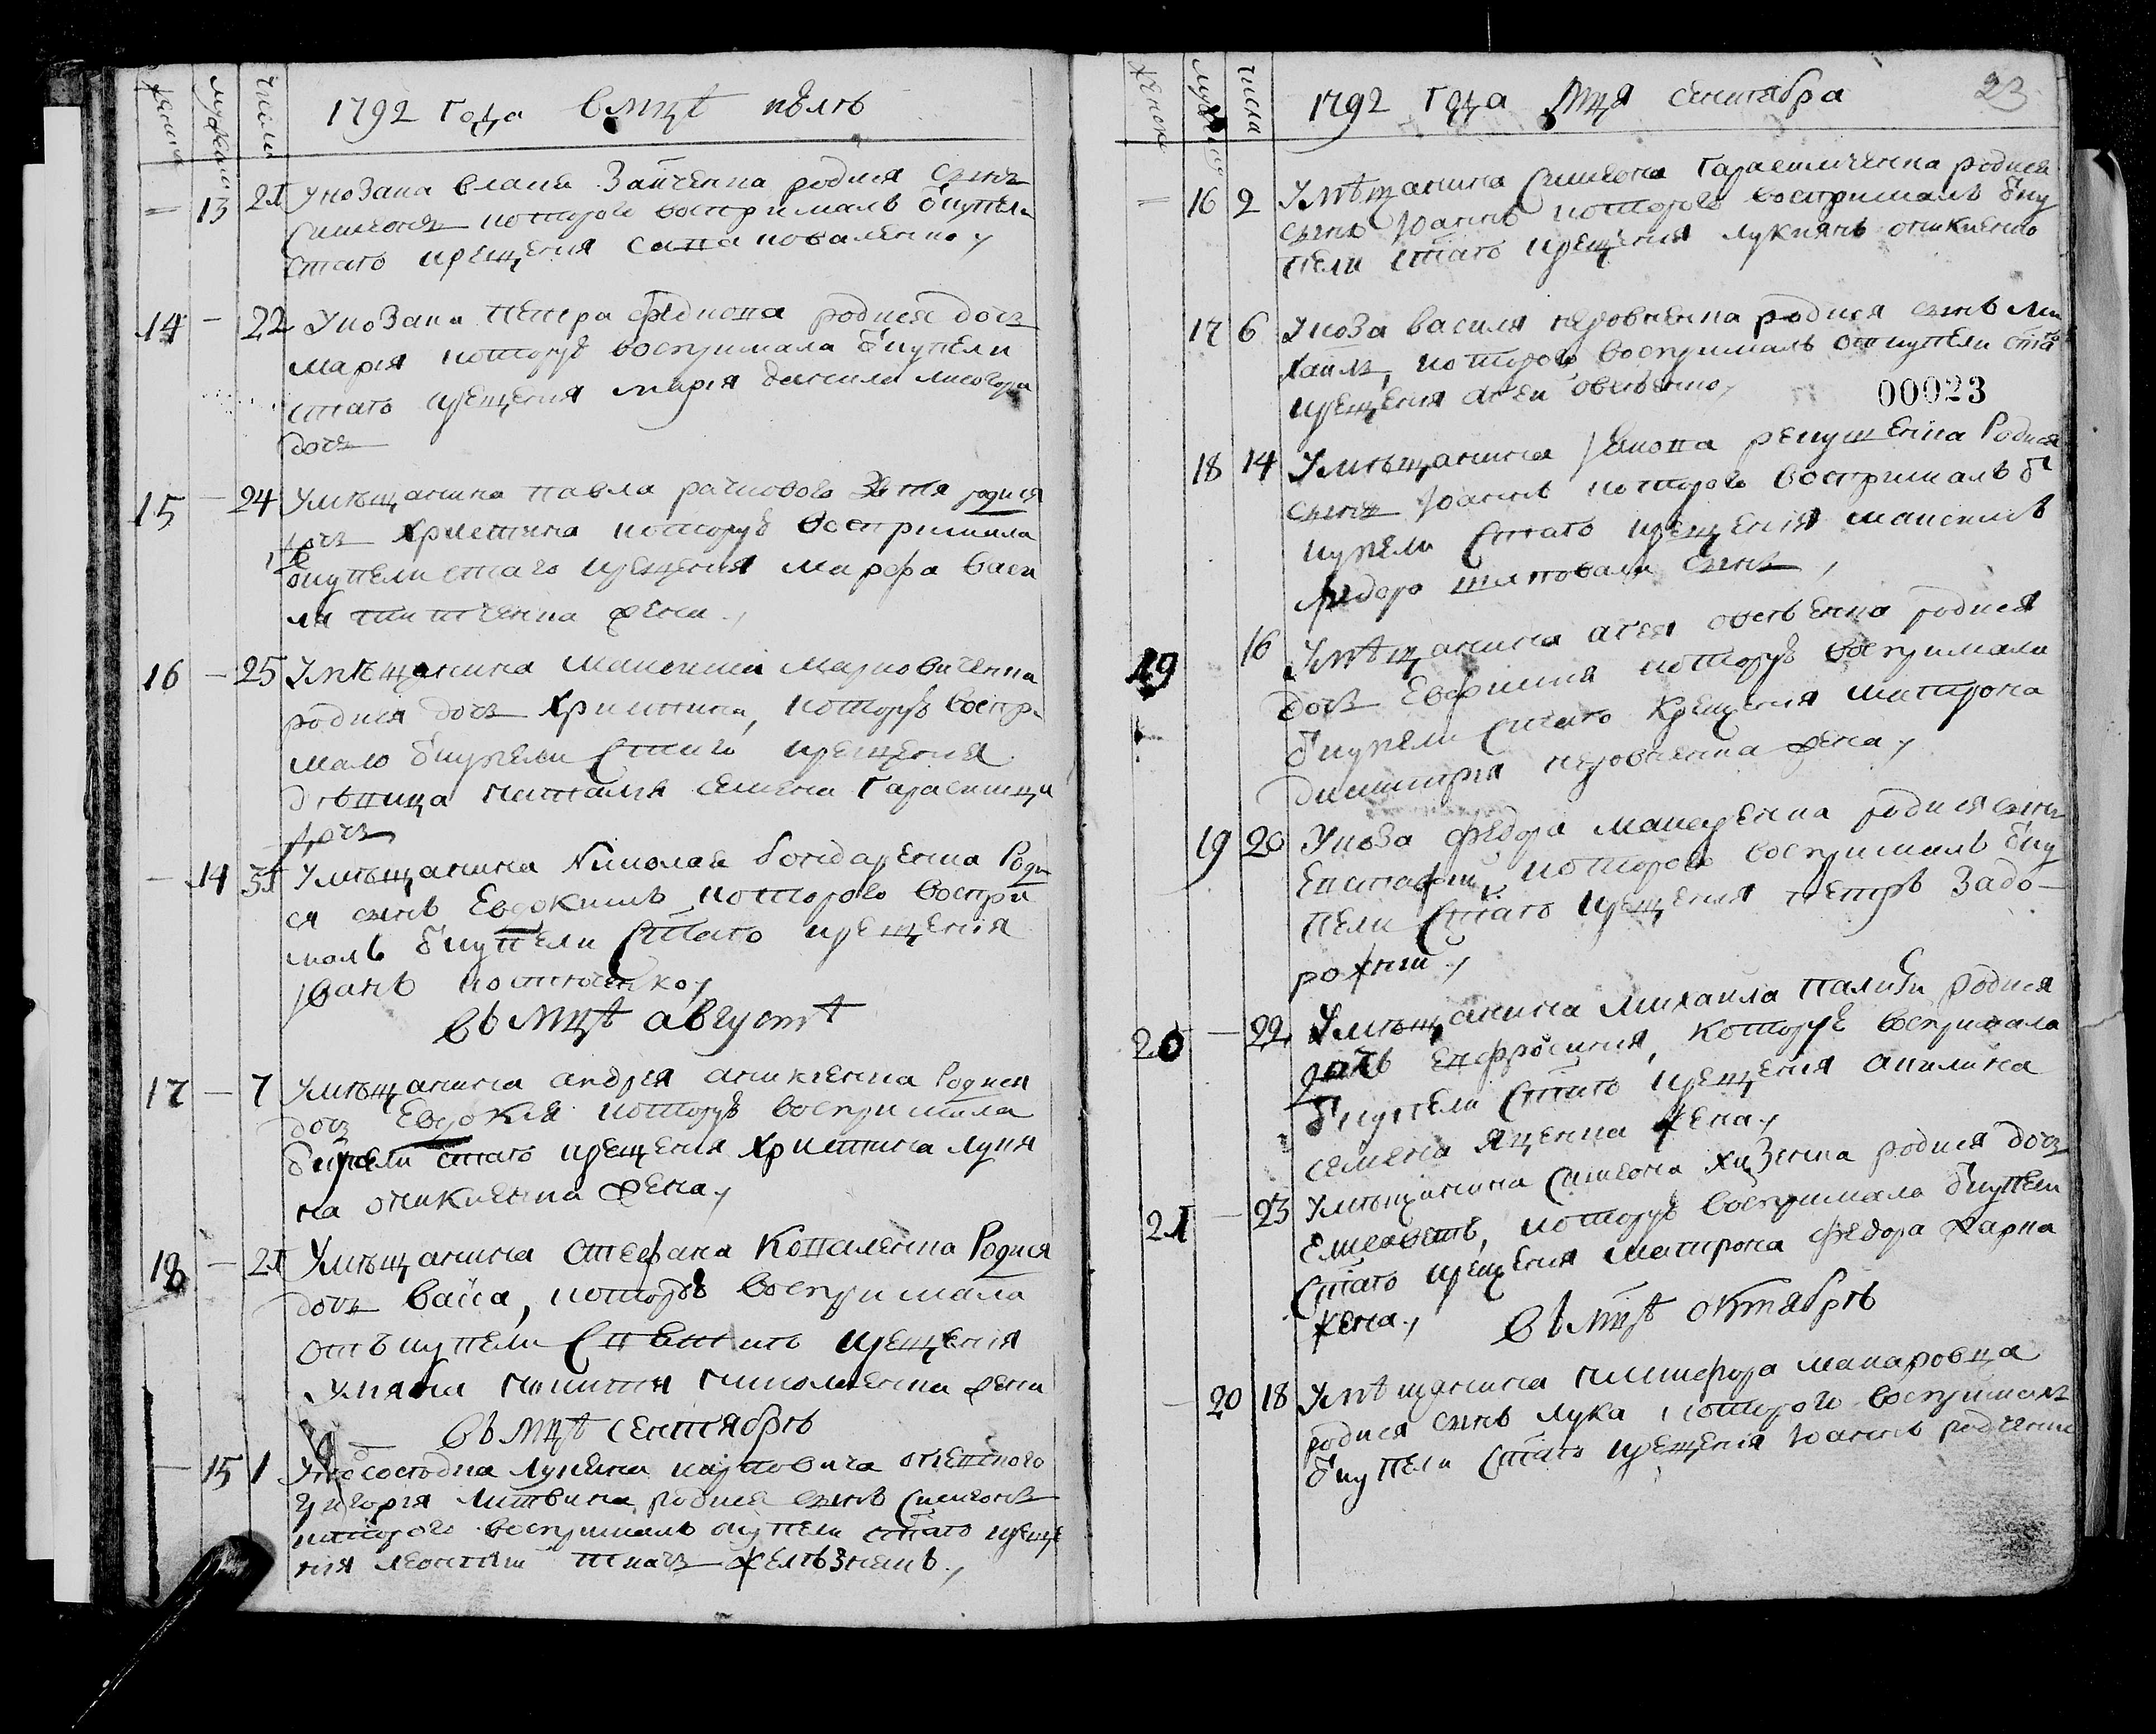 женск мужска числа
1792 года вмцѣ июлѣ
13 21 У козака власия Зайченка родися сынъ
Симеонъ которого восприималъ ѿкупели
стаго крещения сапа коваленко
14 – 22 У козака Петра родися дочъ
мария которую восприимала ѿкупели
стаго крещения мария
дочъ
15 – 24 Умѣщанина павла рачкового зятя родися
дочъ християна которую восприимала
ѿкупели стаго крещения марфа васи
ля жена
16 – 25 Умѣщанина максима марковиченка
родися дочъ християна, которую воспри
мала ѿкупели стаго крещения
дѣвица наталия семена Гарасимца
дочъ
– 14 31 Умѣщанина Николая бондаренка Роди
ся сынъ Евдокимъ которого воспри
малъ ѿкупели стаго крещения
иванъ костюченко
въ мцѣ августѣ
17 – 7 Умѣщанина андрея аникиенка Родися
дочъ Евдокия которую восприимала
ѿкупели стаго крещения християна лукя
на оникиенка жена
18 – 21 Умѣщанина Стефана Коваленка Родися
дочъ васса, которую восприимала
отъ купели крещения
Николаенка жена
въ мцѣ сентябрѣ
– 15 1 карповича
григория литвина родися сынъ Симеонъ
которого восприималъ ѿкупели стаго креще
ния леонтий ткачъ желѣзнякъ
женск мужска числа
1792 года мця сентября 23
16 2 Умѣщанина Симеона Гарасимченка родися
сынъ Иоаннъ которого восприималъ ѿку
пели стаго крещения лукиянъ оникиенко
17 6 У коза василя неровненка родися сынъ ми
хаилъ, которого восприималъ откупели стаго
крещения агей овсѣенко
00023
18 14 Умѣщанина Якова репушенка Родися
сынъ Иоаннъ которого восприималъ ѿ
купели стаго крещения максимъ
федора шаповала сынъ
19 16 Умѣщанина агея овсѣенка родися
дочъ Евфимия которую восприимала
ѿкупели стаго крещения матрона
димитрия неровненка жена
19 20 У коза федора макаренка родися сынъ
Евстафий, которого восприималъ ѿку
пели стаго крещения петръ задо-
рожний
20 – 22 Умѣщанина михаила палия родися
дочъ Евфросиния, которую восприимала
ѿкупели стаго крещения акилина
семена яценка жена
21 – 23 Умѣщанина Симеона родися дочъ
Елисаветъ, которую восприимала ѿкупели
стаго крещения матрона федора
жена
въ мцѣ октябрѣ
– 20 18 Умѣщанина никифора макаровца
родися сынъ лука, которого восприималъ
ѿкупели стаго крещения Иоаннъ радченко